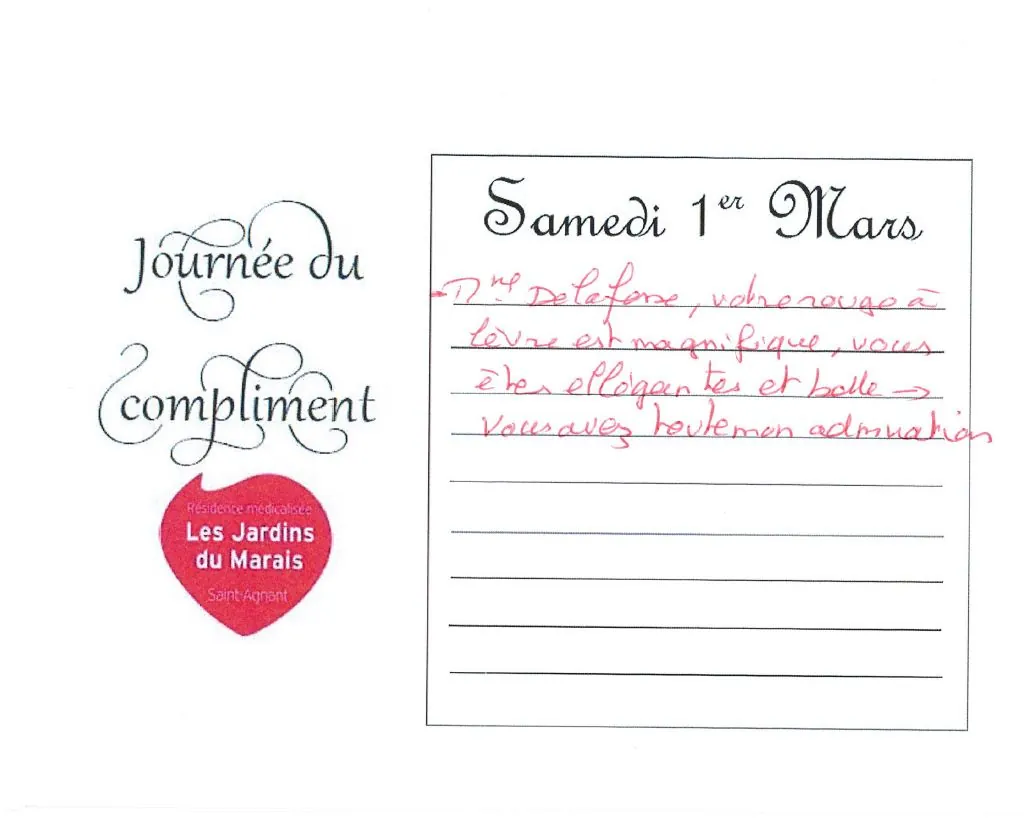 Journée du
compliment
Résidence médicalisée
Les Jardins
du Marais
Saint-Agnant
Samedi 1er Mars
- Mme Delafosse, votre rouge à
lèvre est magnifique, vous
êtes ellégantes et belle →
vous avez toute mon admiration